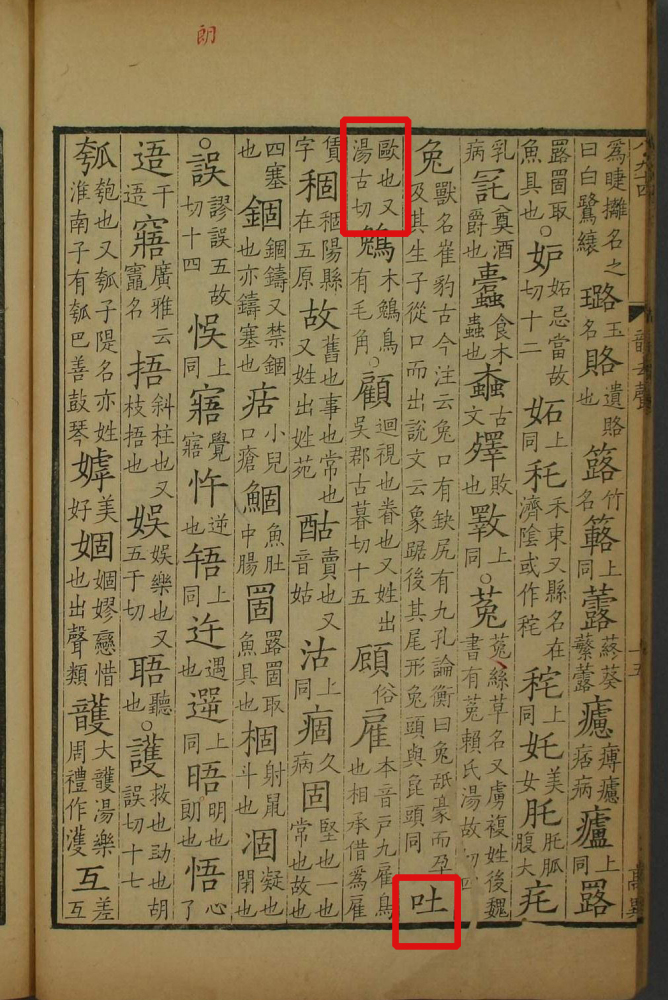 朗
為睫攡名之曰白鷺縗璐玉名賂遺賂也簬竹名簵上同虂蔠葵蘩虂㿖痺㿖痞病上同䍡
䍡䍛取魚具也○妒妬忌當故切十二妬上同秅禾束又縣名在濟陰或作秺秺上同奼美女腹大
乳病奠酒爵也蠹食木蟲也螙古文殬敗也斁上同○菟菟絲草名又虜複姓後魏書有菟賴氏湯故切四
兔獸名崔豹古今注云兔口有缺尻有九孔論衡曰兔舐豪而孕及其生子從口而出說文云象踞後其尾形兔頭與㲋頭同吐
歐也又湯古切鵵木鵵鳥有毛角○顧迴視也眷也又姓出吳郡古暮切十五頋俗雇本音戶九雇鳥也相承借為雇
賃字稒稒陽縣在五原故舊也事也常也又姓出姓苑酤賣也又音姑沽上同痼久病固堅也一也常也故也
四塞也錮錮鑄又禁錮也亦鑄塞也㽽小兒口瘡鯝魚肚中腸䍛䍡䍛取魚具也棝射鼠斗也凅凝也閉也
○誤謬誤五故切十四悞上同寤覺寤忤逆也啎上同迕遇也遻上同晤明也朗也悟心了
逜干逜廣雅云竈名捂斜柱也又枝捂也娛娛樂也又五于切聽也○護救也助也胡誤切十七
瓠匏也又瓠子隄名亦姓淮南子有瓠巴善鼓琴嫭美好婟婟嫪戀惜也出聲類頀大頀湯樂周禮作濩互差互